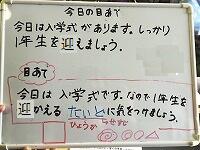 今日の目あて
今日は入学式があります。しっかり
1年生を迎えましょう。
目あて
今日は入学式です。なので1年生を
迎かえる たいどに気をつけましょう。
ひょうか